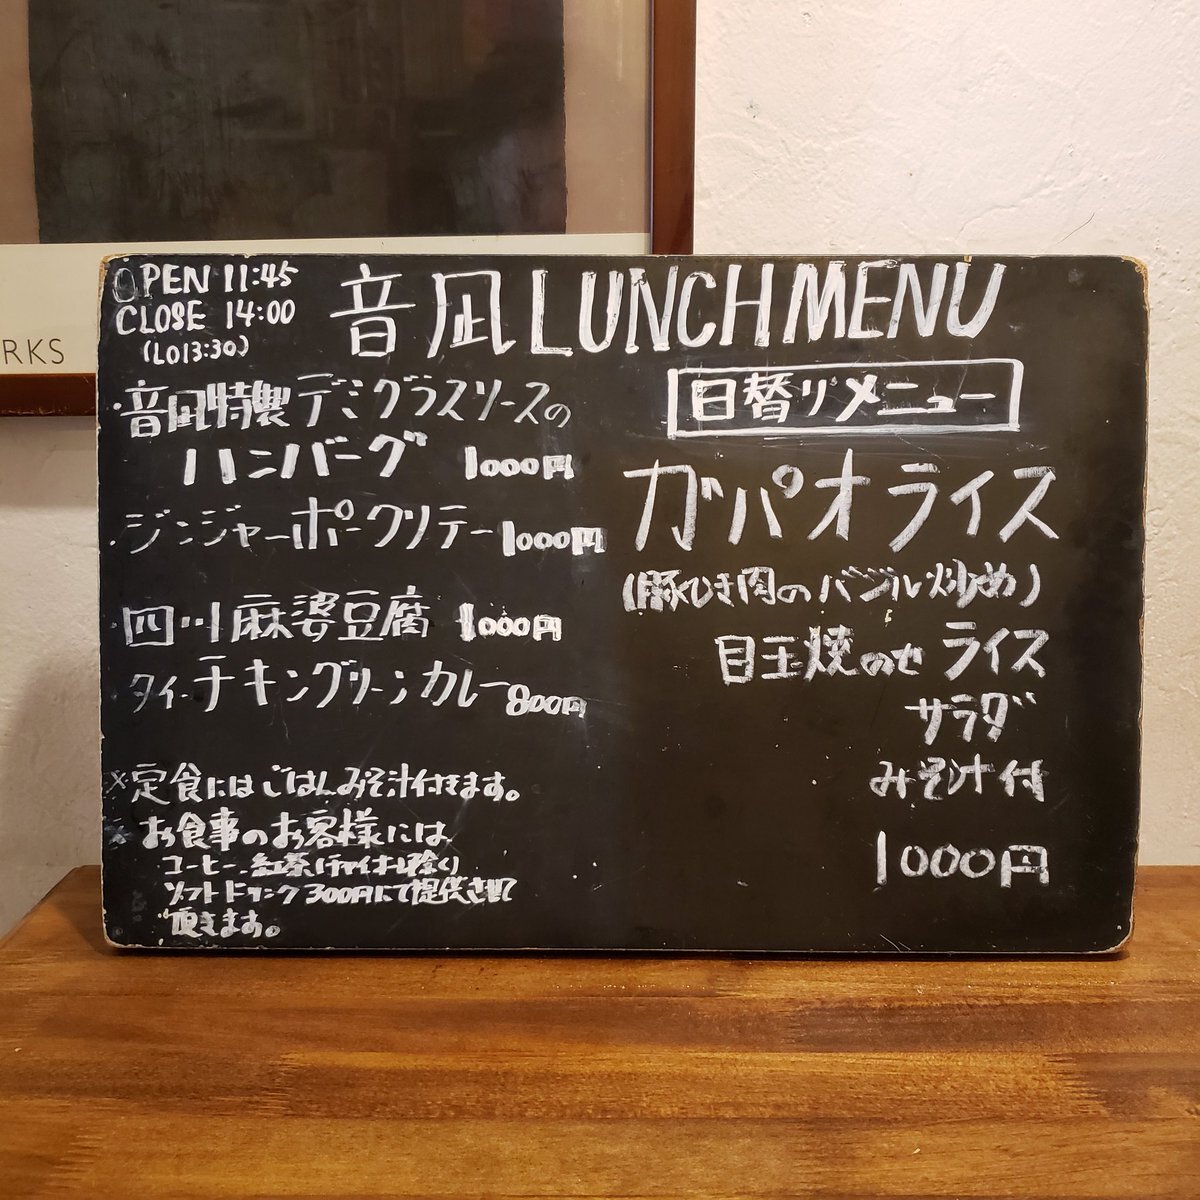 RKS
OPEN 11:45
CLOSE 14:00
(LO13:30)
音凪 LUNCH MENU
・音凪特製デミグラスソースの
ハンバーグ 1000円
・ジンジャーポークソテー 1000円
・四川麻婆豆腐 1000円
・タイ・チキングリーンカレー 800円
※定食にはごはんみそ汁付きます。
※お食事のお客様には
コーヒー、紅茶(チャイオーレ除く)
ソフトドリンク300円にて提供させて
頂きます。
日替りメニュー
ガパオライス
(豚ひき肉のバジル炒め)
目玉焼のせ ライス
サラダ
みそ汁付
1000円